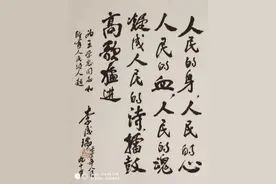 人民的身，人民的心
人民的血，人民的魂
凝成人民的诗，擂鼓
高歌奋进
为王学忠同志和
所有人民诗人题
李成瑞